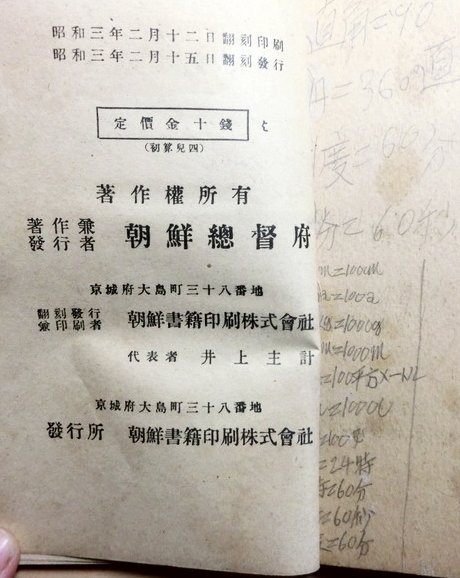 昭和三年二月十二日翻刻印刷
昭和三年二月十五日翻刻發行
定價金十錢
(初算兒四)
著作權所有
著作兼
發行者 朝鮮總督府
京城府大島町三十八番地
翻刻發行
兼印刷者 朝鮮書籍印刷株式會社
代表者 井上主計
京城府大島町三十八番地
發行所 朝鮮書籍印刷株式會社
直角=90
=360
=60分
=60秒
=100cm
=100a
=1000g
=1000m
=100平方メートル
=24時
=60分
=60秒
=60分